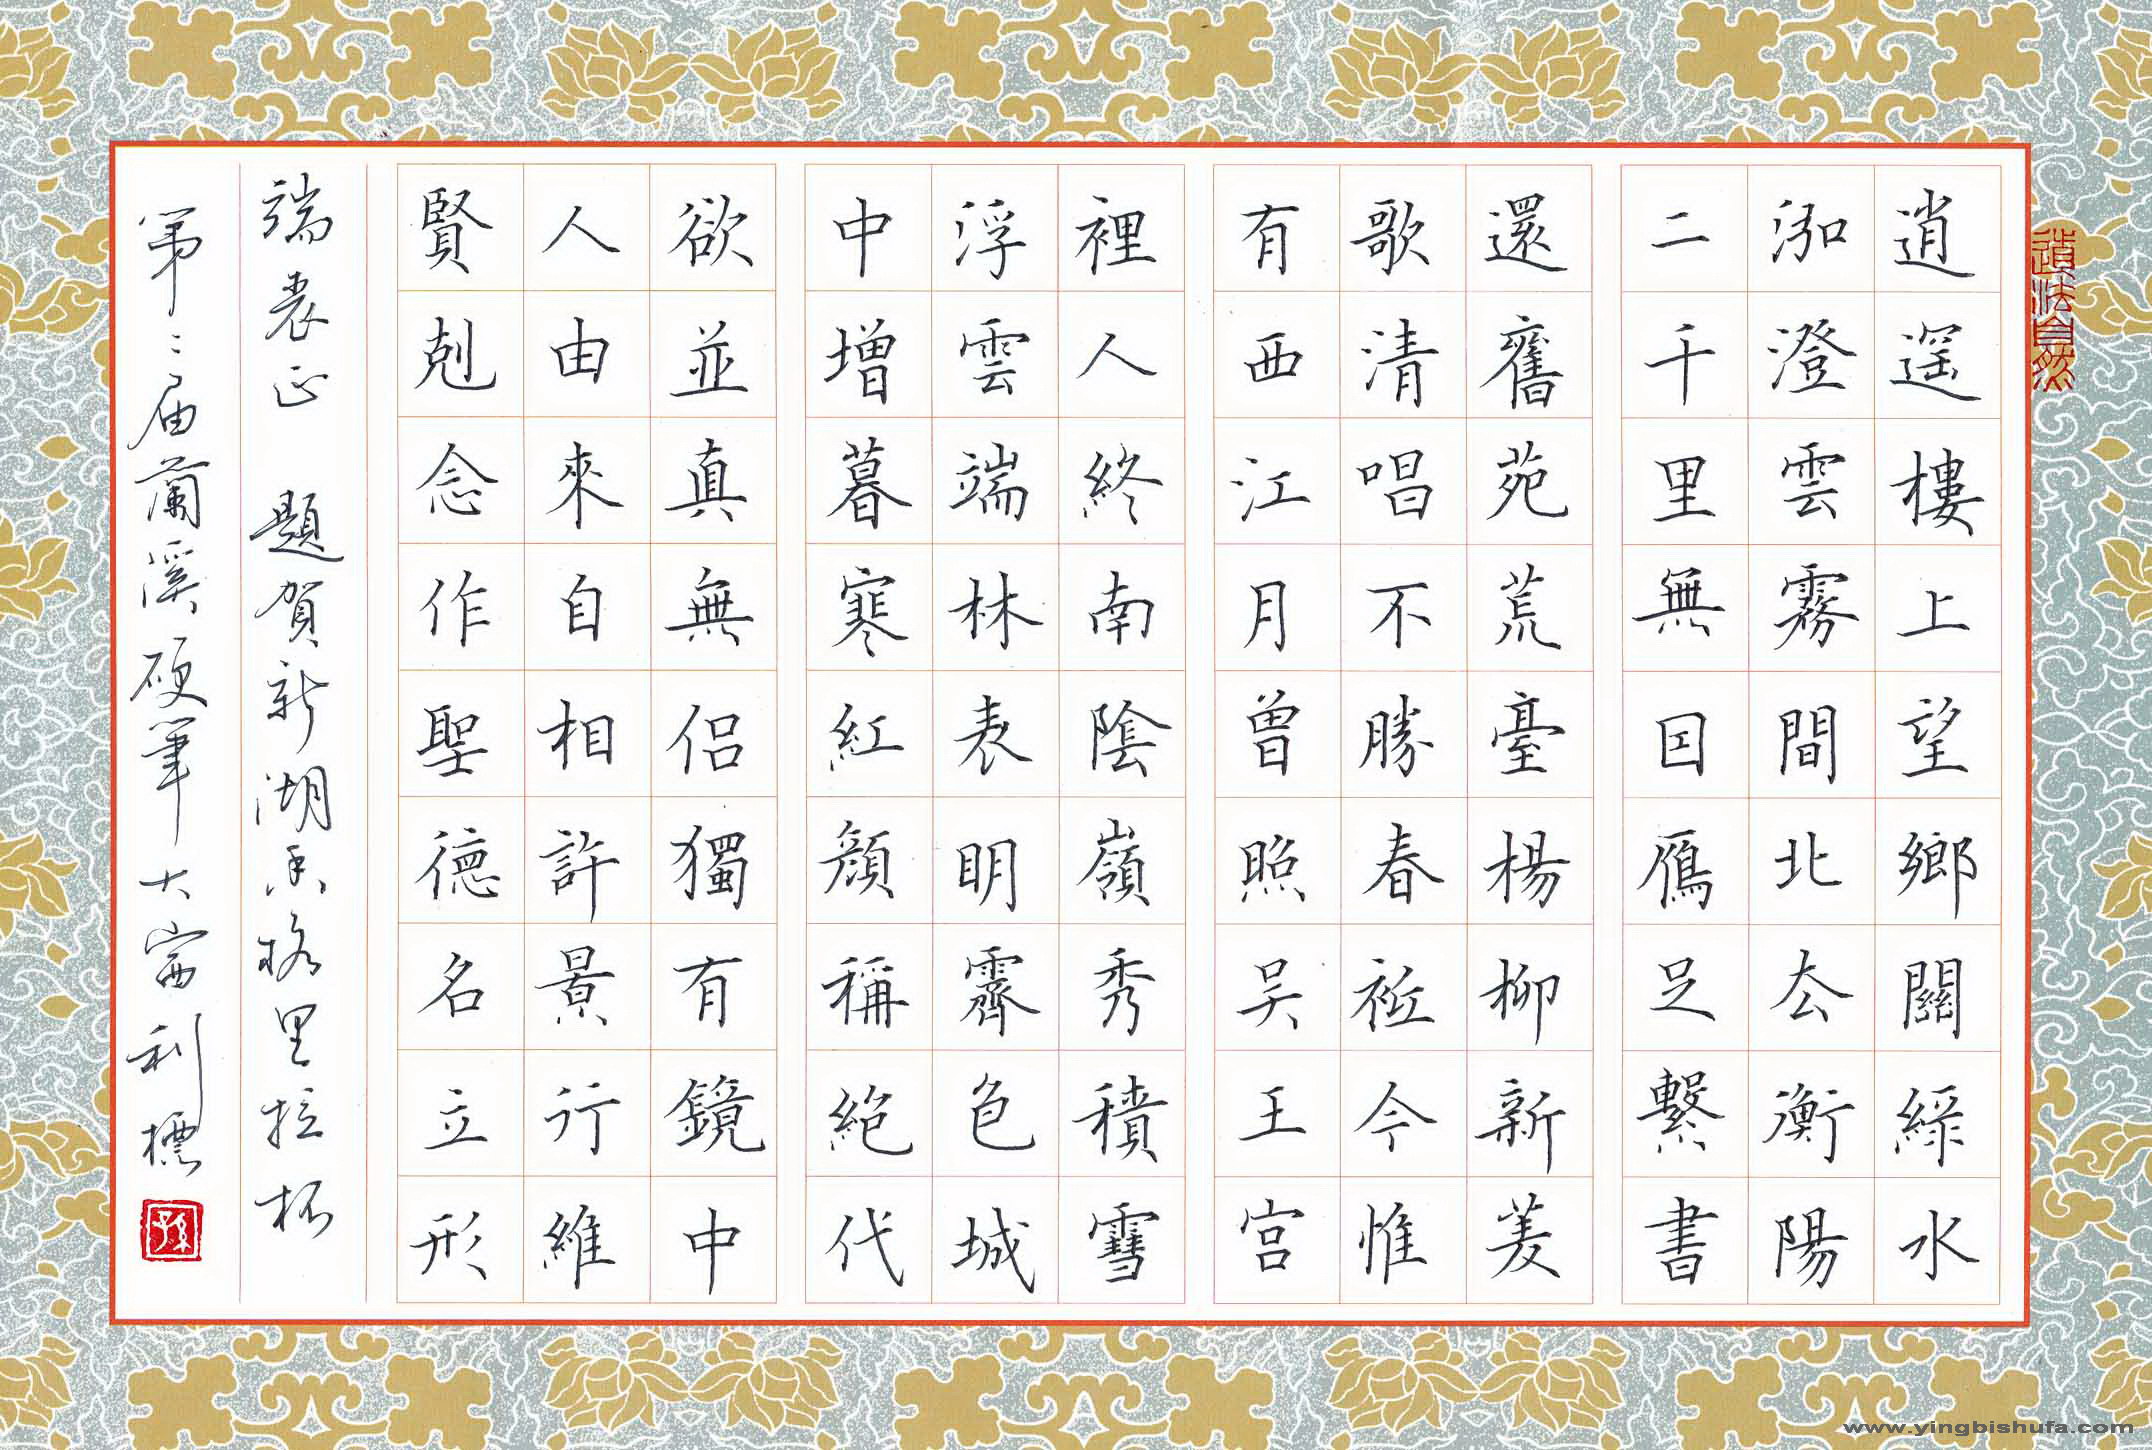 道法自然
逍遥樓上望鄉關緑水
泓澄雲霧間北去衡陽
二千里無囙鴈足繫書
還舊苑荒臺楊柳新菱
歌清唱不勝春衹今惟
有西江月曾照吴王宫
裡人終南陰嶺秀積雪
浮雲端林表明霽色城
中增暮寒紅顔稱絶代
欲並真無侣獨有鏡中
人由來自相許景行維
賢剋念作聖德名立形
端表正 題賀新湖香格里拉杯
第二届蘭溪硬筆大賽利標
孫
www.yingbishufa.com